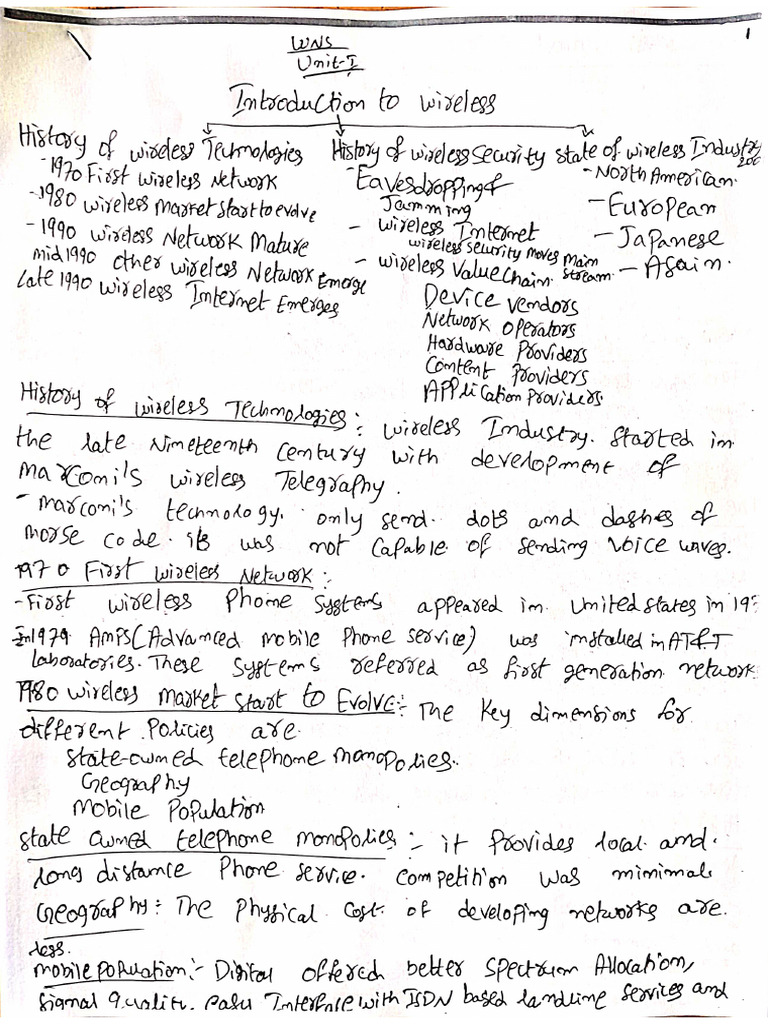 1
WNS
Unit-I
Introduction to wireless
History of wireless Technologies
- 1970 First wireless Network
- 1980 wireless market start to evolve
- 1990 wireless Network Mature
mid 1990 other wireless Network Emerge
Late 1990 wireless Internet Emerges
History of wireless security
- Eavesdropping &
Jamming
- wireless Internet
wireless security moves main
stream.
- wireless value chain.
Device vendors
Network operators
Hardware Providers
Content Providers
Application Providers
state of wireless Industry
- North American.
- European
- Japanese
- Asain.
History of wireless Technologies: wireless Industry. started in
the late Nineteenth century with development of
Marconi's wireless Telegraphy.
- marconi's technology. only send. dots and dashes of
morse code. its was not capable of sending voice waves.
1970 First wireless Network:
- First wireless phone systems appeared in united states in
In 1979. AMPS (Advanced mobile Phone service) was installed in AT&T
laboratories. These systems referred as first generation network
1980 wireless market start to Evolve:- The key dimensions for
different policies are
state-owned telephone monopolies.
Geography
Mobile Population
state owned telephone monopolies:- it provides local and.
long distance Phone service. competition was minimal.
Geography: The physical cost. of developing networks are.
less.
mobile population:- Digital offered better spectrum Allocation,
signal quality, easy Interface with ISDN based landline services and